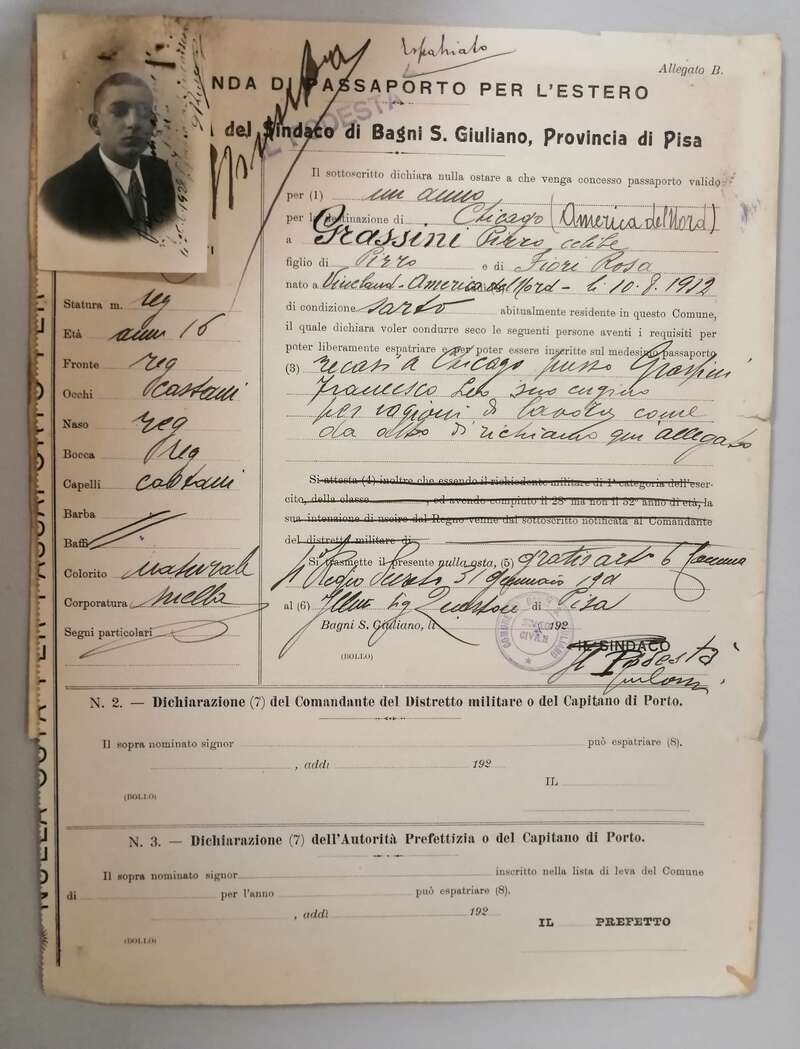 Espatriato
Allegato B.
NDA DI PASSAPORTO PER L'ESTERO
IL PODESTA
del Sindaco di Bagni S. Giuliano, Provincia di Pisa
Il sottoscritto dichiara nulla ostare a che venga concesso passaporto valido
per (1) un anno
per la destinazione di Chicago (America del Nord)
a Grassini Pirro celibe
figlio di Pirro e di Fiori Rosa
nato a Vineland - America del Nord - li 10.8.1912
di condizione sarto abitualmente residente in questo Comune,
il quale dichiara voler condurre seco le seguenti persone aventi i requisiti per
poter liberamente espatriare e per poter essere inscritte sul medesimo passaporto
(3) recasi a Chicago presso Grassini
Francesco suo cugino
per ragioni di lavoro come
da atto di richiamo qui allegato
Si attesta (4) inoltre che essendo il richiedente militare di 1ª categoria dell'eser-
cito, della classe , ed avendo compiuto il 28° ma non il 32° anno di età, la
sua intenzione di uscire dal Regno venne dal sottoscritto notificata al Comandante
del distretto militare di
Si trasmette il presente nulla osta, (5) gratis art. 6
Regio Decreto 31 Gennaio 1901
al (6) Ill.mo Sig Questore di Pisa
Bagni S. Giuliano, lì 192
(BOLLO)
IL SINDACO
Il Podestà
Statura m. reg
Età anni 16
Fronte reg
Occhi castani
Naso reg
Bocca reg
Capelli castani
Barba
Baffi
Colorito naturale
Corporatura snella
Segni particolari
N. 2. — Dichiarazione (7) del Comandante del Distretto militare o del Capitano di Porto.
Il sopra nominato signor può espatriare (8).
, addì 192
IL
(BOLLO)
N. 3. — Dichiarazione (7) dell'Autorità Prefettizia o del Capitano di Porto.
Il sopra nominato signor inscritto nella lista di leva del Comune
di per l'anno può espatriare (8).
, addì 192
IL PREFETTO
(BOLLO)